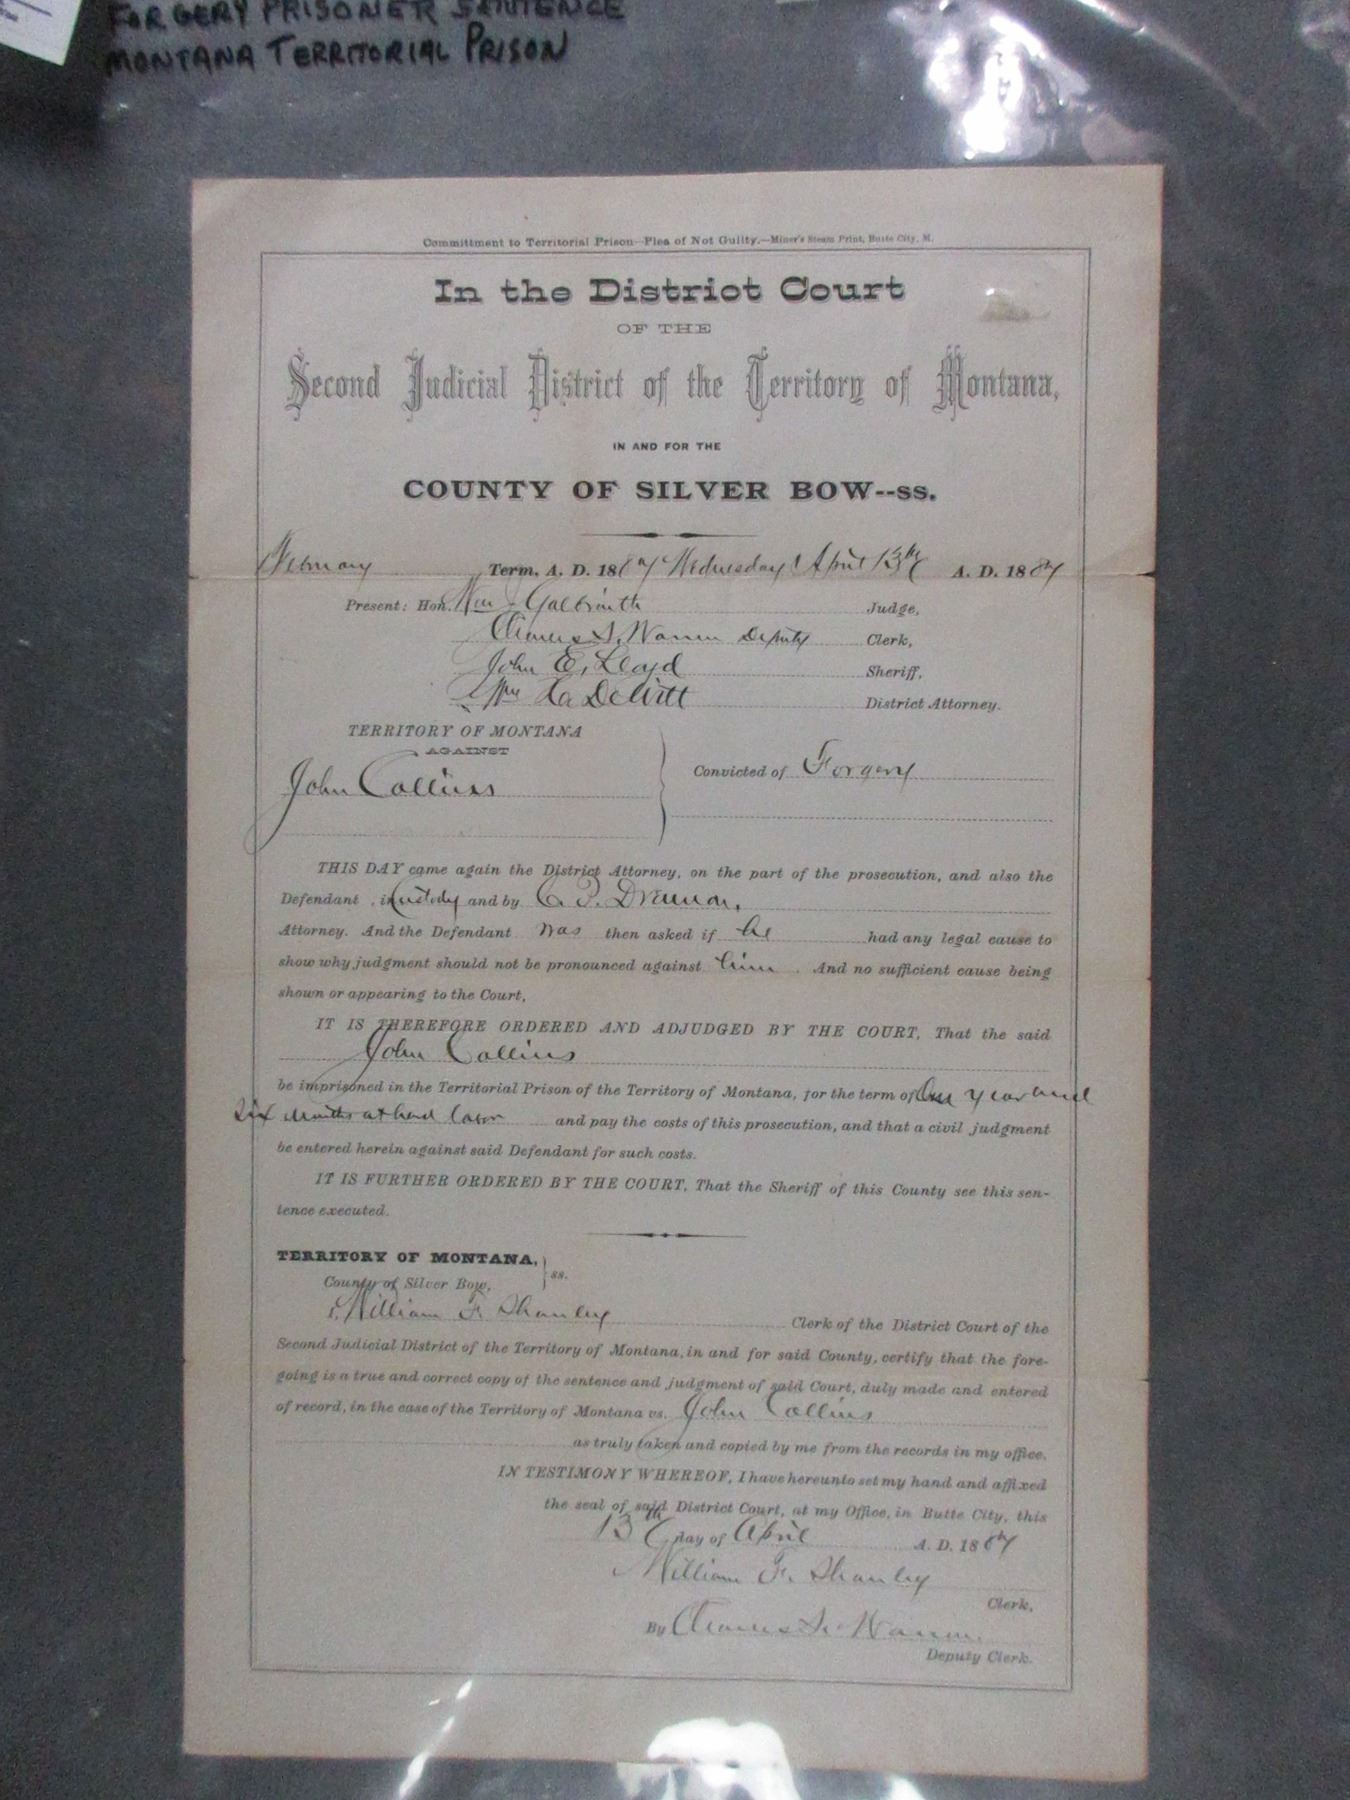 FORGERY PRISONER SENTENCE
MONTANA TERRITORIAL PRISON
Committment to Territorial Prison—Plea of Not Guilty.—Miner's Steam Print, Butte City, M.
In the District Court
OF THE
Second Judicial District of the Territory of Montana,
IN AND FOR THE
COUNTY OF SILVER BOW--ss.
February Term, A. D. 1887 Wednesday April 13th A. D. 1887
Present: Hon. Wm J Galbraith Judge,
Charles S. Warren Deputy Clerk,
John E. Lloyd Sheriff,
Wm H. DeWitt District Attorney.
TERRITORY OF MONTANA
AGAINST
John Collins
Convicted of Forgery
THIS DAY came again the District Attorney, on the part of the prosecution, and also the
Defendant, in Custody and by C. P. Drennan,
Attorney. And the Defendant was then asked if he had any legal cause to
show why judgment should not be pronounced against him. And no sufficient cause being
shown or appearing to the Court,
IT IS THEREFORE ORDERED AND ADJUDGED BY THE COURT, That the said
John Collins
be imprisoned in the Territorial Prison of the Territory of Montana, for the term of One year and
Six months at hard labor and pay the costs of this prosecution, and that a civil judgment
be entered herein against said Defendant for such costs.
IT IS FURTHER ORDERED BY THE COURT, That the Sheriff of this County see this sen-
tence executed.
TERRITORY OF MONTANA, ss.
County of Silver Bow,
I, William F. Shanley Clerk of the District Court of the
Second Judicial District of the Territory of Montana, in and for said County, certify that the fore-
going is a true and correct copy of the sentence and judgment of said Court, duly made and entered
of record, in the case of the Territory of Montana vs. John Collins
as truly taken and copied by me from the records in my office.
IN TESTIMONY WHEREOF, I have hereunto set my hand and affixed
the seal of said District Court, at my Office, in Butte City, this
13th day of April A. D. 1887
William F. Shanley
Clerk,
By Charles S. Warren
Deputy Clerk.